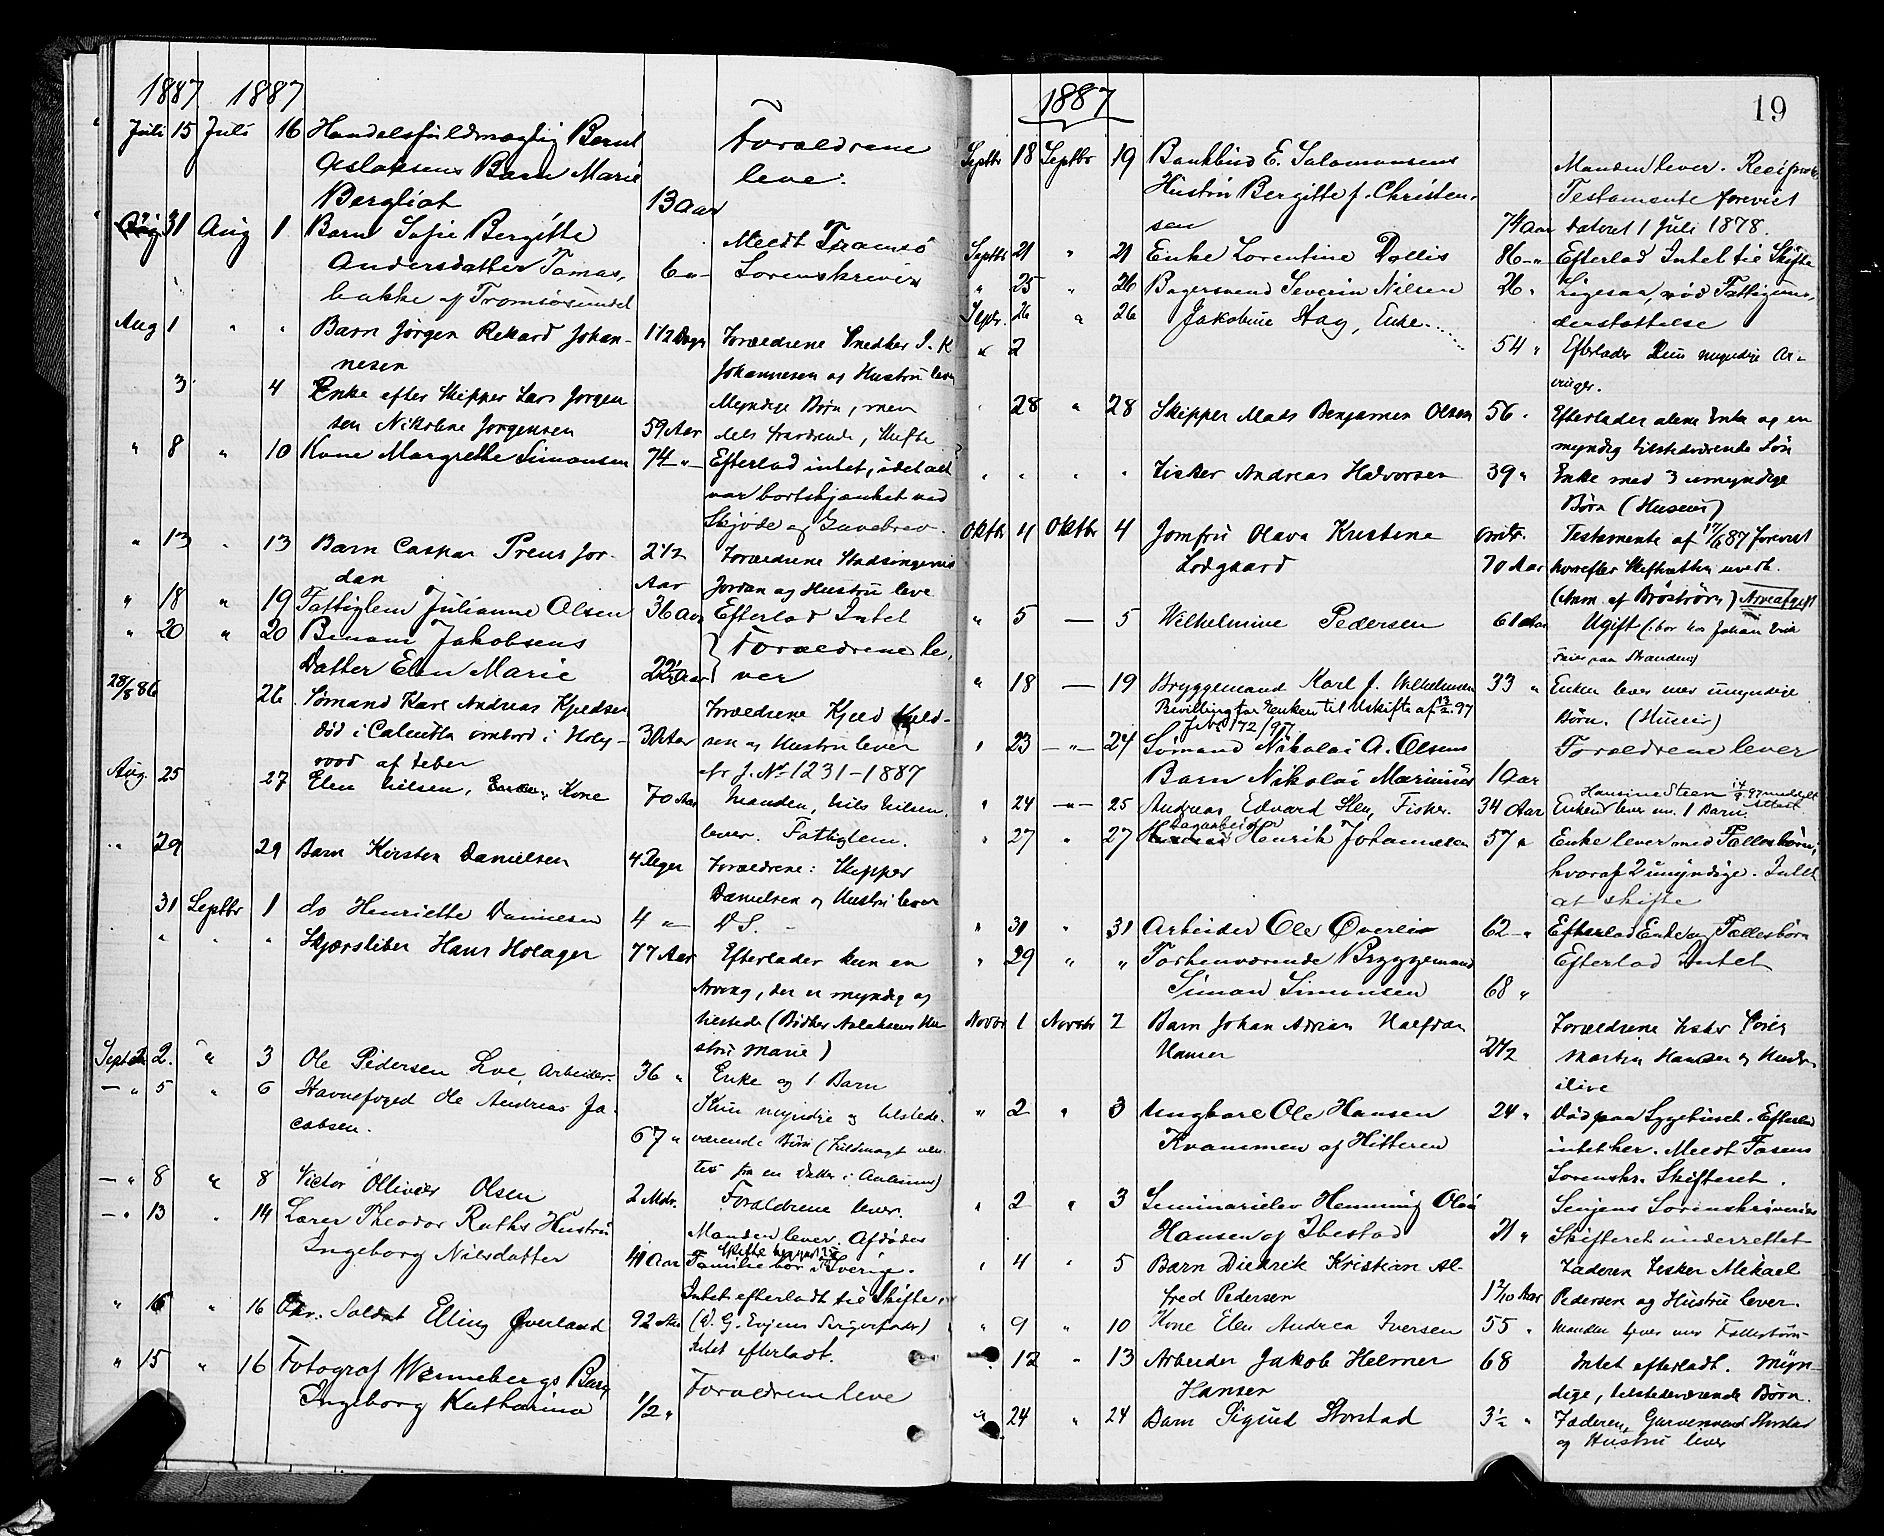 1887 1887
Juli 15 Juli 16 Handelsfuldmægtig Bernt
Aslaksens Barn Marie
Bergliot 13 Aar
Forældrene
leve.
31 Aug 1 Barn Sofie Bergitte
Andersdatter Tomas-
bakke af Tromsøsundet 6 "
Meldt Tromsø
Sorenskriver
Aug 1 " " Barn Jørgen Rekard Johan-
nesen 1 1/2 Dage
Forældrene Snedker J. K
Johannesen og Hustru lever
3 4 Enke efter Skipper Lars Jørgen
sen Nikoline Jørgensen 59 Aar
Myndige Børn, men
dels fraværende, Skifte
" 8 " 10 Kone Margrethe Simonsen 74 "
Efterlod intet, idet alt
var bortskjænket ved
Skjøde og Gavebrev.
" 13 . 13 Barn Caspar Preus Jor-
dan 2 1/2 Aar
Forældrene Stadsingeniør
Jordan og Hustru leve
" 18 " 19 Fattiglem Julianne Olsen 36 Aar Efterlod Intet
" 20 " 20 Jakobsens
Datter Elen Marie Aar
Forældrene le-
ver
28/8 86 26 Sømand Karl Andreas Kjeldsen
død i Calcutta ombord i Holy-
rood af feber 30 Aar
Forældrene Kjeld Kjeld-
sen og Hustru lever
cfr J. No 1231-1887
Aug. 25 27 Elen Nilsen, Kone 70 Aar
Manden, Nils Nilsen
lever. Fattiglem.
" 29 29 Barn Kirsten Danielsen 4 Dager
Forældrene: Skipper
Danielsen og Hustru lever
31 Septbr 1 do Henriette Danielsen 4 " D S.
" " " Skjærsliber Hans Holager 77 Aar
Efterlader kun en
Arving, der er myndig og
tilstede (Bødker Aslaksens Hu-
stru Marie)
2. " 3 Ole Pedersen Lve, Arbeider 36 " Enke og 1 Barn
— " 5 " 6 Havnefoged Ole Andreas Ja-
cobsen. 67 "
Kun myndige og tilstede-
værende Børn (Fuldmagt ven-
tes fra en Datter i Aalesund)
— " 8 " 8 Victor Ollivier Olsen 2 Mdr. Forældrene lever.
— " 13 . 14 Lærer Theodor Ruths Hustru
Ingeborg Nilsdatter 41 Aar
Manden lever. Afdødes
Familie bor i Sverige.
Intet efterladt til Skifte.
" 15 " 16 Soldat Elling Øverland 92 Aar
Intet efterladt.
" 15 " 16 Fotograf Wennebergs Barn
Ingeborg Katharina 1/2 "
Forældrene leve
1887
19
Septbr 18 Septbr 19 Bankbud E. Salamonsens
Hustru Bergitte f. Christen-
sen 74 Aar
Manden lever. Reciprok
Testamente forevist
dateret 1 Juli 1878.
Septbr 21 " 21 Enke Lorentine Dollis 86 " Efterlod Intet til Skifte
" 25 " 26 Bagersvend Severin Nilsen 26 "
Ligesaa, nød Fattigun-
derstøttelse
Septr. 26 " 26 Jakobine Hay, Enke
" 2 54 "
Efterlader kun myndige Ar-
vinger.
28 " 28 Skipper Mads Benjamin Olsen 56 "
Efterlader alene Enke og en
myndig tilstedeværende Søn
" " " Fisker Andreas Halvorsen 39 "
Enke med 3 umyndige
Børn (Huseier)
Oktbr 4 Oktbr 4 Jomfru Olava Kristine
Lodgaard omtr. 70 Aar
Testamente af 17/6 87 forevist
hvorefter Skifteretten uvedk.
(Anm. af Brøstrøm) Arveafgift
" 5 — 5 Wilhelmine Pedersen 61 Aar
Ugift (: bor hos Johan Erik
Feier paa Stranden)
" 18 — 19 Bryggemand Karl J. Wilhelmsen 33 "
Bevilling for Enken til Uskifte af 13/2 97
Enken lever med umyndige
Børn. (Huseier)
" 23 — " — 24 Sømand Nikolai A. Olsens
Barn Nikolai Marinius 1 Aar
Forældrene lever
" 24 — " — 25 Andreas Edvard Sten, Fisker. 34 Aar
Enken lever m. 1 Barn.
" 27 " 27 Dagarbeider Henrik Johannesen 57 "
Enke lever med Fællesbørn,
hvoraf 2 umyndige. Intet
at skifte
" 31 " 31 Arbeider Ole Øverli 62 " Efterlod Enke og Fællesbørn
" 29 " " Forhenværende Bryggemand
Simon Simonsen 68 "
Efterlod intet
Novbr 1 Novbr 2 Barn Johan Adrian Halfdan
Hansen 2 1/2
Forældrene Fisker Peier
Martin Hansen og Hustru
ilive
" 2 " 3 Ungkarl Ole Hansen
Kvammen af Hitteren 24 "
Død paa Sygehuset. Efterlod
intet her. Meldt Fosens
Sorenskr. Skifteret.
" 2 " 3 Seminarielev Henning Olai
Hansen af Ibestad 21 "
Senjens Sorenskriveries
Skifteret underrettet
" 4 " 5 Barn Diedrik Kristian Al-
fred Pedersen 1 2/10 Aar
Faderen Fisker Mikael
Pedersen og Hustru lever.
" 9 " 10 Kone Elen Andrea Iversen 55 " Manden lever med Fællesbørn
12 " 13 Arbeider Jakob Helmer
Hansen 68
Intet efterladt. Myn-
dige, tilstedeværende Børn.
" 24 " 24 Barn Sigurd Storstad 3 1/2 "
Faderen, Garversvend Storstad
og Hustru lever